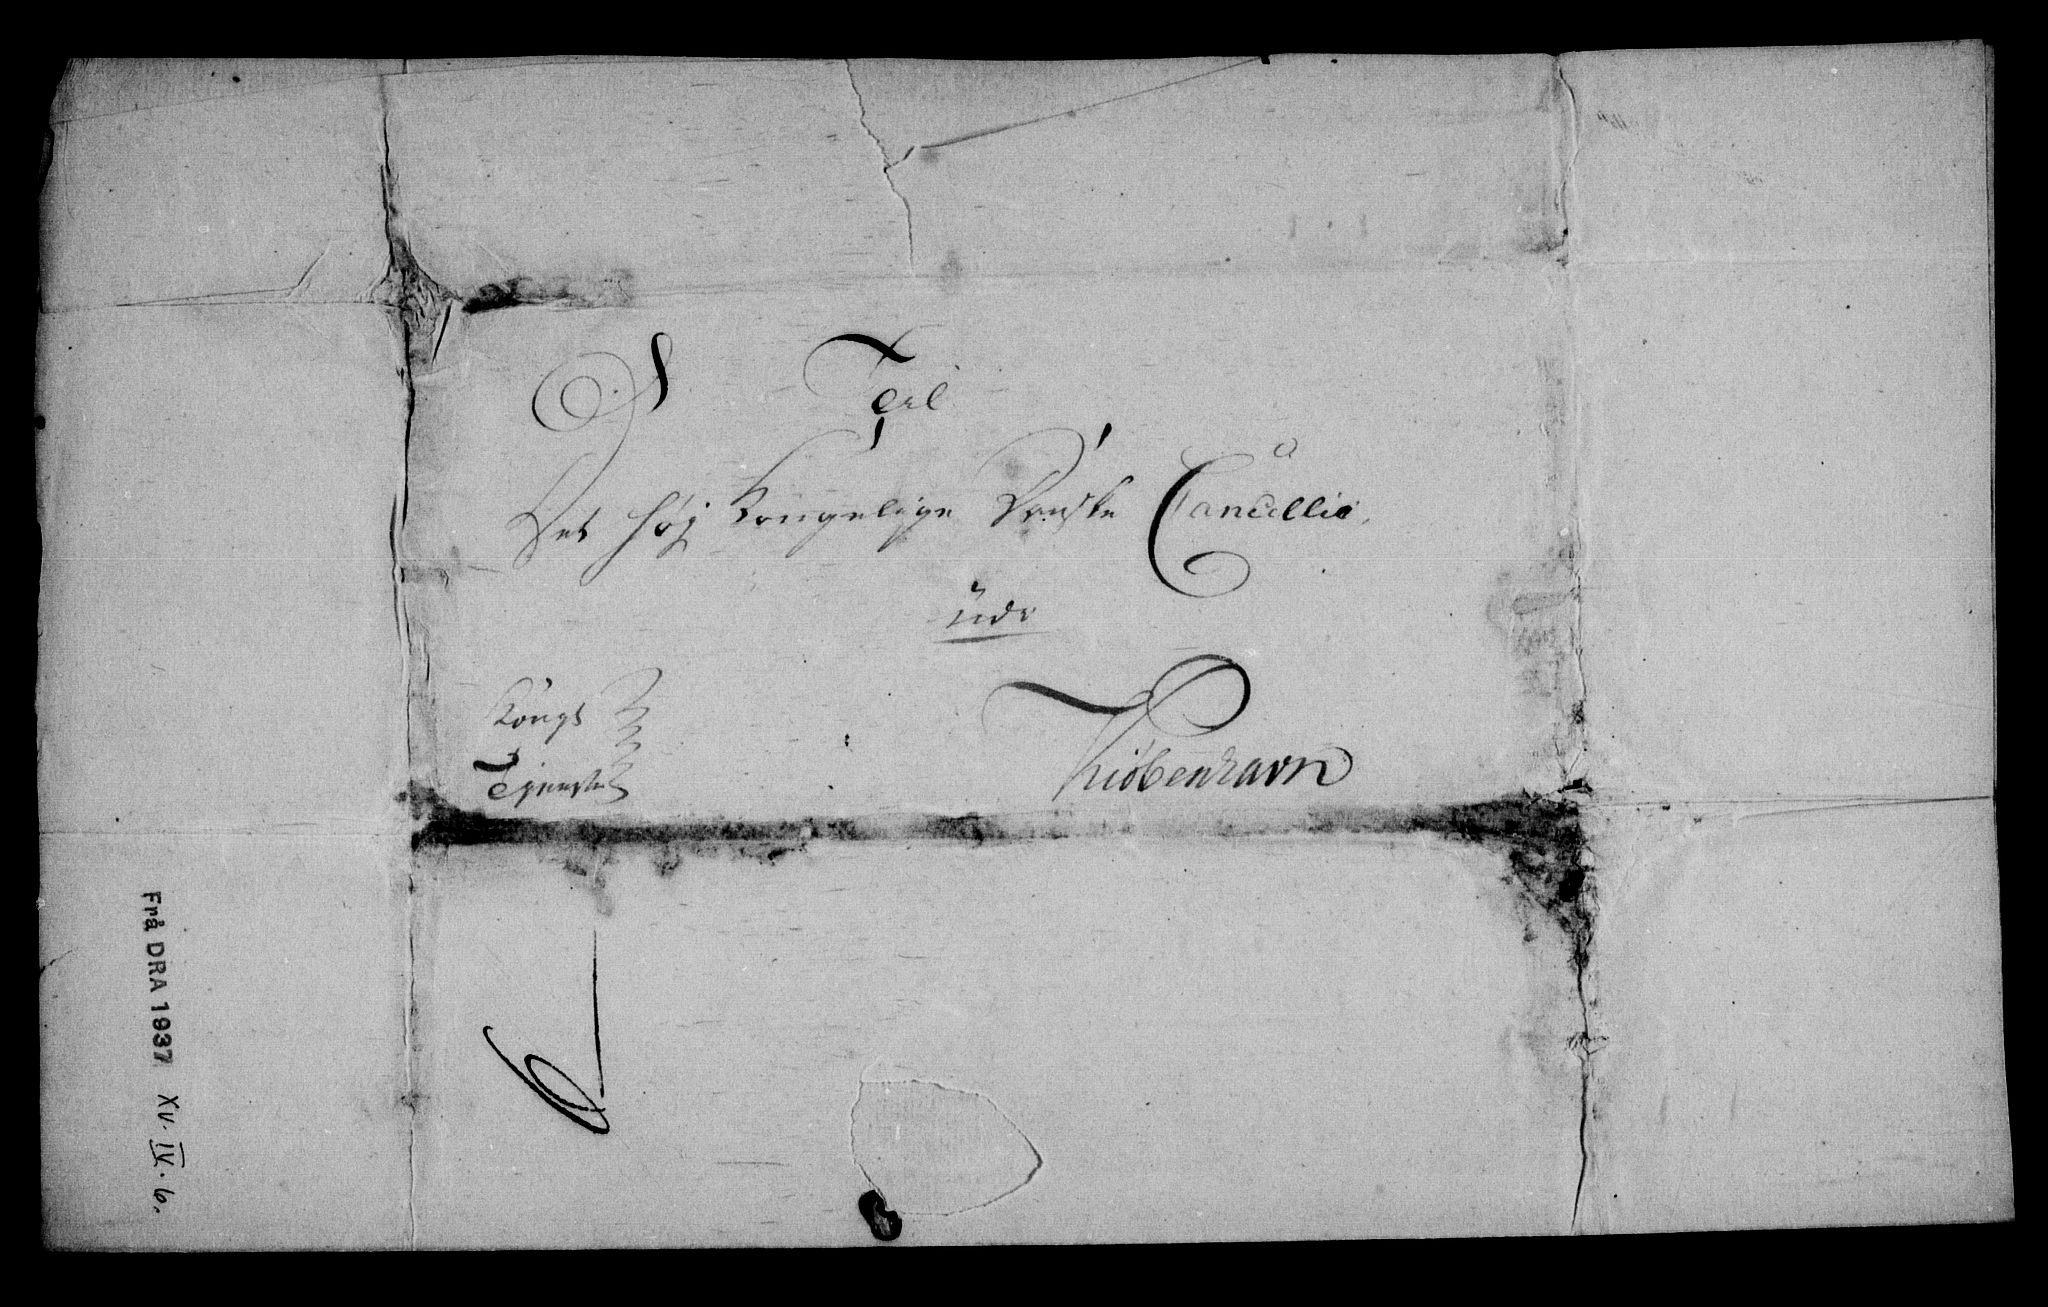 Til
Det høy Kongelige Danske Cancellie,
udi
Kongs
Tjeneste
Kiöbenhavn
Frå DRA 1937 XV. IV. 6.